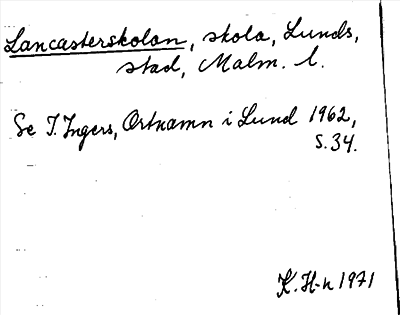 Lancasterskolan, skola, Lunds,
stad, Malm. l.
Se I. Ingers, Ortnamn i Lund 1962,
s. 34.
K. H-n 1971